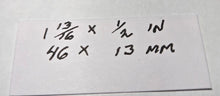 1 13/16 x 1/2 IN
46 x 13 MM